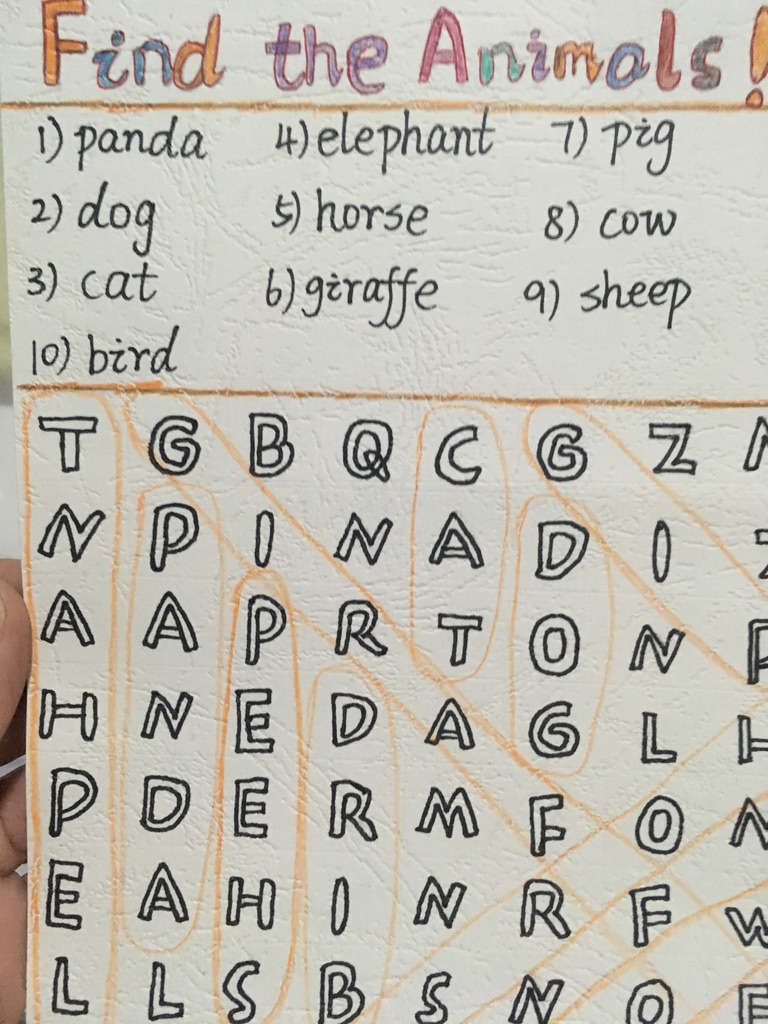 Find the Animals!
1) panda 4) elephant 7) pig
2) dog 5) horse 8) cow
3) cat 6) giraffe 9) sheep
10) bird
T G B Q C G Z
N P I N A D I
A A P R T O N
H N E D A G L
P D E R M F O
E A H I N R F W
L L S B S N O